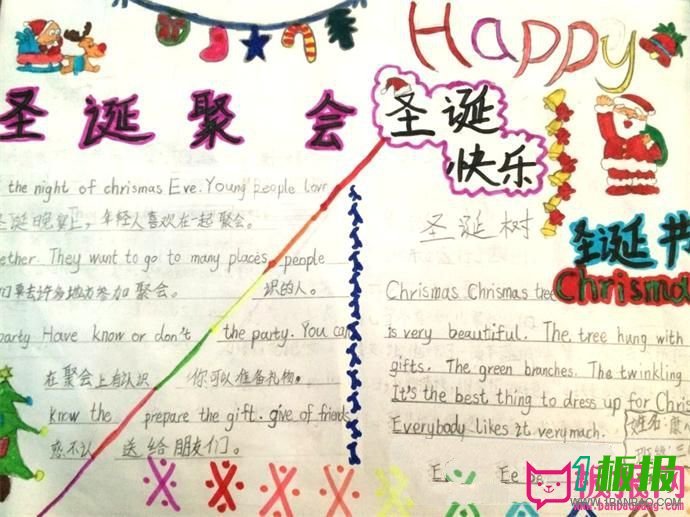 Happy
圣诞聚会
圣诞
快乐
the night of chrismas Eve. Young people love
圣诞晚宴上，年轻人喜欢在一起聚会。
ether. They want to go to many places, people
们要去许多地方参加聚会。 识的人。
party Have know or don't the party. You can
在聚会上有认识 你可以准备礼物。
know the prepare the gift. give of friends
恋不认 送给朋友们。
圣诞树
圣诞节
Chrisma
Chrismas Chrismas tree
is very beautiful. The tree hung with
gifts. The green branches. The twinkling
It's the best thing to dress up for Chris
Everybody likes it verymach.
姓名:
班级:三
板报网
www.banbaowang.com
1板报
WWW.1BANBAO.COM